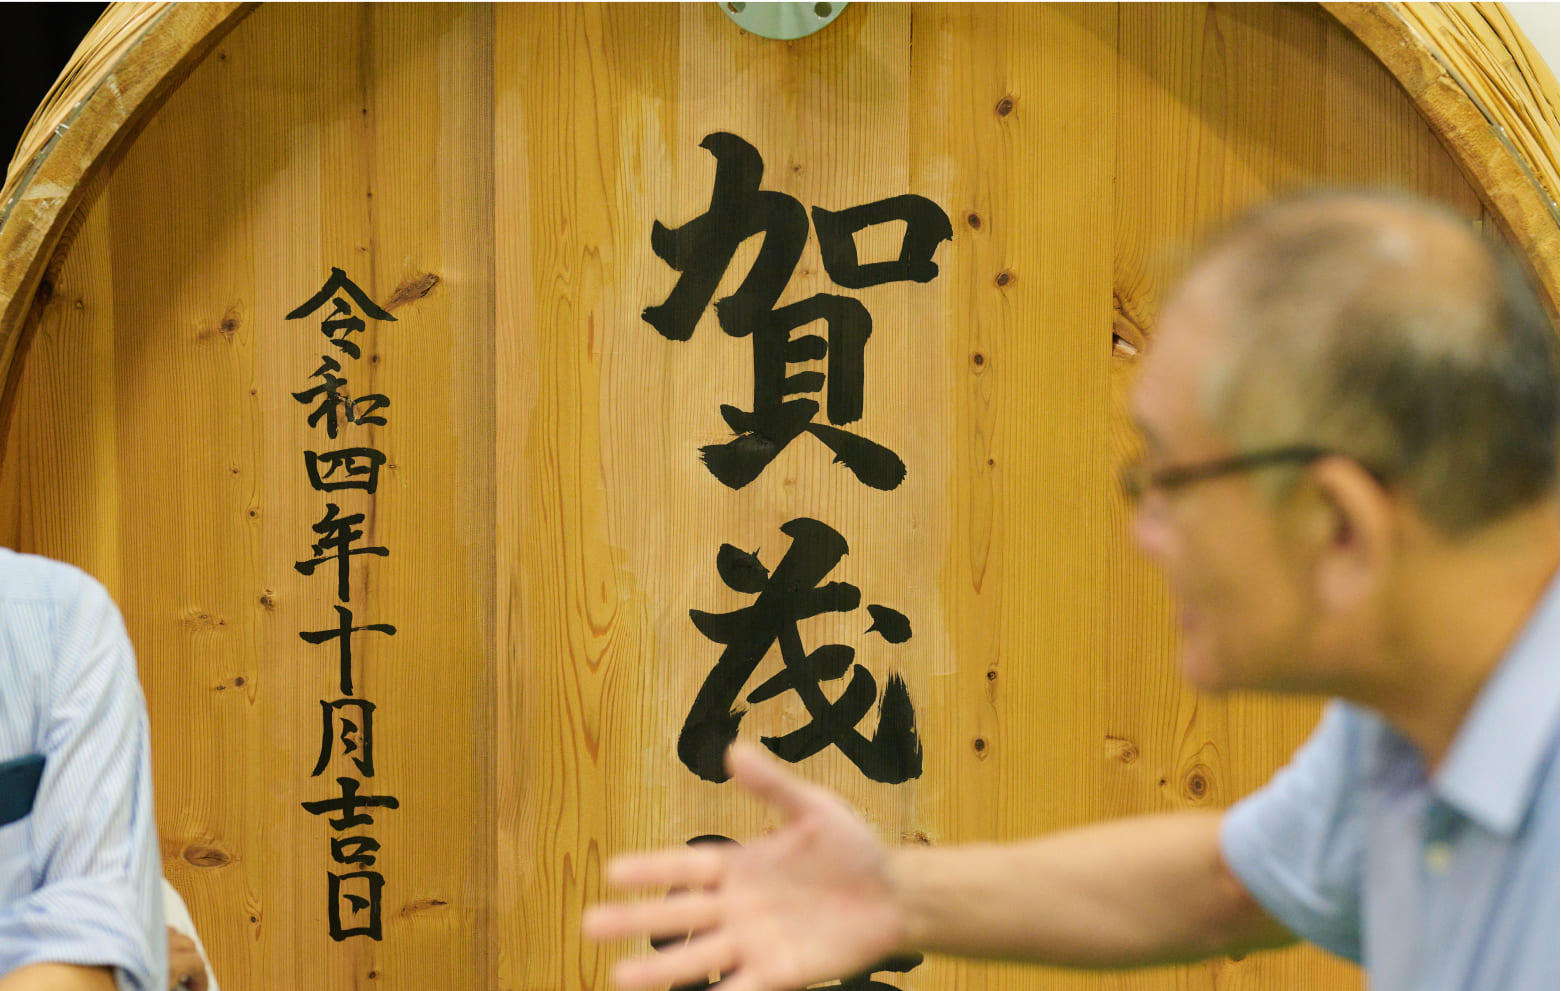 賀茂
令和四年十月吉日